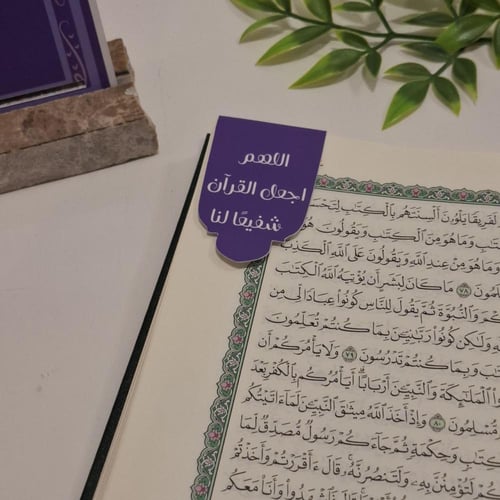 اللهم
اجعل القرآن
شفيعًا لنا
لَفَرِيقًا يَلْوُۥنَ أَلْسِنَتَهُم بِٱلْكِتَـٰبِ لِتَحْسَبُوهُ
ـتَـٰبِ وَمَا هُوَ مِنَ ٱلْكِتَـٰبِ وَيَقُولُونَ هُوَ
ـهِ وَمَا هُوَ مِنْ عِندِ ٱللَّهِ وَيَقُولُونَ عَلَى ٱللَّهِ ٱلْكَذِبَ
ـلَمُونَ ٧٨ مَا كَانَ لِبَشَرٍ أَن يُؤْتِيَهُ ٱللَّهُ ٱلْكِتَـٰبَ
ـكْمَ وَٱلنُّبُوَّةَ ثُمَّ يَقُولَ لِلنَّاسِ كُونُوا۟ عِبَادًا لِّى مِن
ـهِ وَلَـٰكِن كُونُوا۟ رَبَّـٰنِيِّـۧنَ بِمَا كُنتُمْ تُعَلِّمُونَ
ـتَـٰبَ وَبِمَا كُنتُمْ تَدْرُسُونَ ٧٩ وَلَا يَأْمُرَكُمْ أَن
ـذُوا۟ ٱلْمَلَـٰٓئِكَةَ وَٱلنَّبِيِّـۧنَ أَرْبَابًا أَيَأْمُرُكُم بِٱلْكُفْرِ بَعْدَ
مُّسْلِمُونَ ٨٠ وَإِذْ أَخَذَ ٱللَّهُ مِيثَـٰقَ ٱلنَّبِيِّـۧنَ لَمَآ ءَاتَيْتُكُم
كِتَـٰبٍ وَحِكْمَةٍ ثُمَّ جَآءَكُمْ رَسُولٌ مُّصَدِّقٌ لِّمَا
ـكُمْ لَتُؤْمِنُنَّ بِهِۦ وَلَتَنصُرُنَّهُۥ قَالَ ءَأَقْرَرْتُمْ وَأَخَذْتُمْ